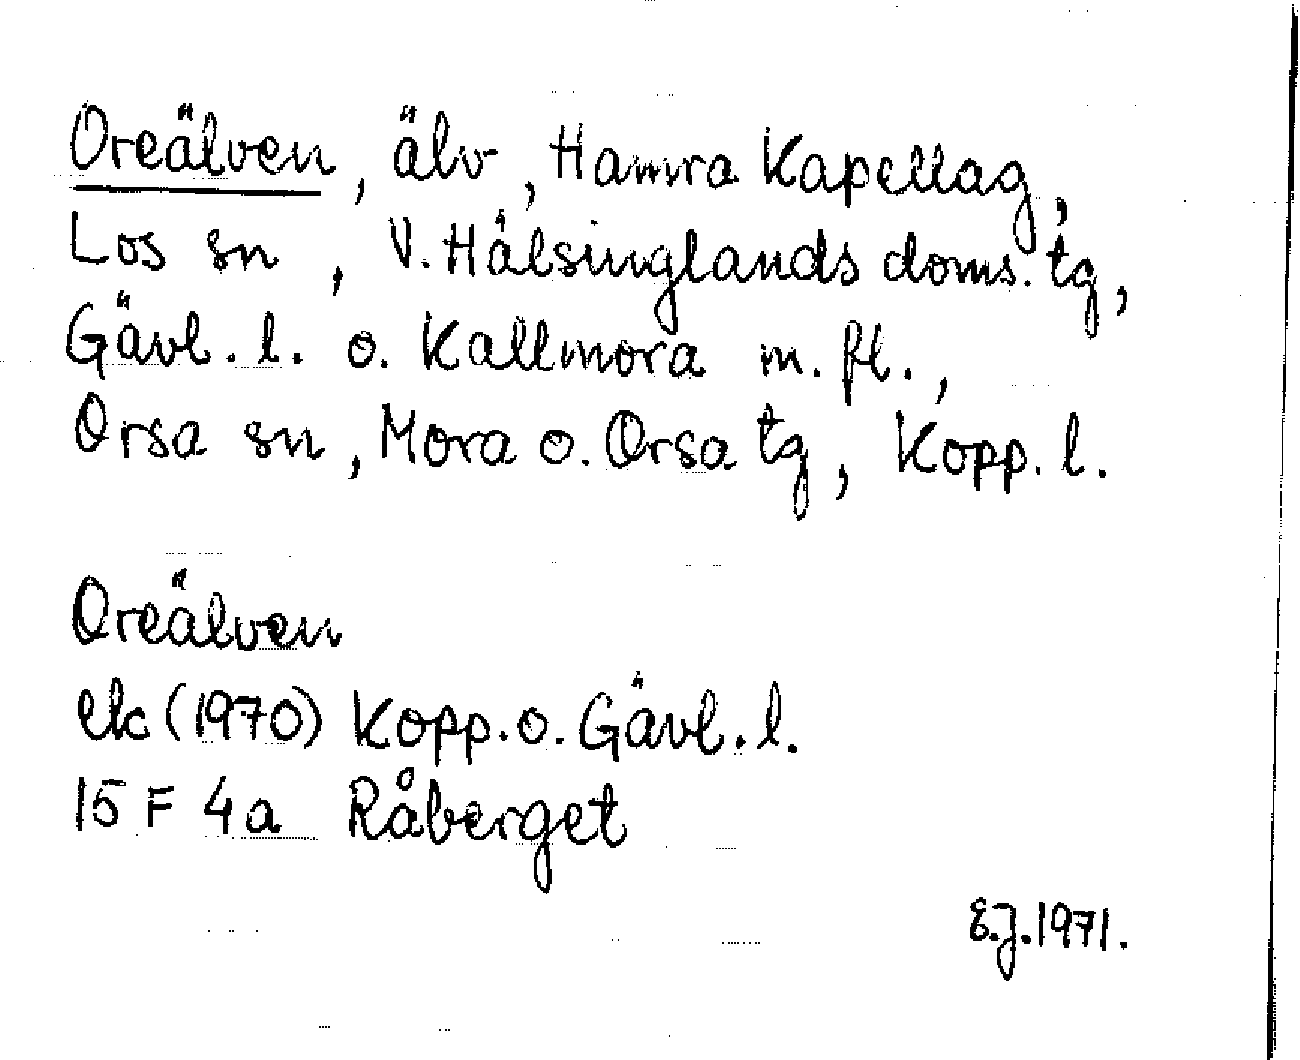 Oreälven, älv, Hamra Kapellag,
Los sn, V. Hälsinglands doms. tg,
Gävl. l. o. Kallmora m. fl.,
Orsa sn, Mora o. Orsa tg, Kopp. l.
Oreälven
ek (1970) Kopp. o. Gävl. l.
15 F 4a Råberget
E.J. 1971.